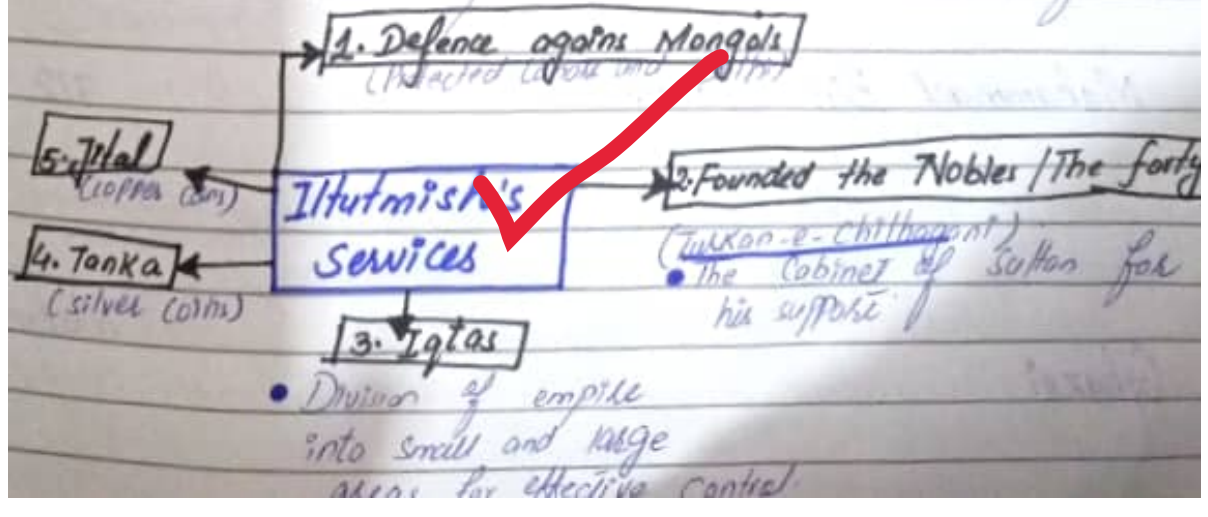 1. Defence agains Mongols
(Protected Lahore and
5. Jital
(copper coins)
Iltutmish's
services
2. Founded the Nobles / The forty
(Turkan-e-Chilhagani)
• The Cabinet of Sultan for
his support
4. Tanka
(silver coins)
3. Iqtas
• Division of empire
into small and large
areas for effective control.